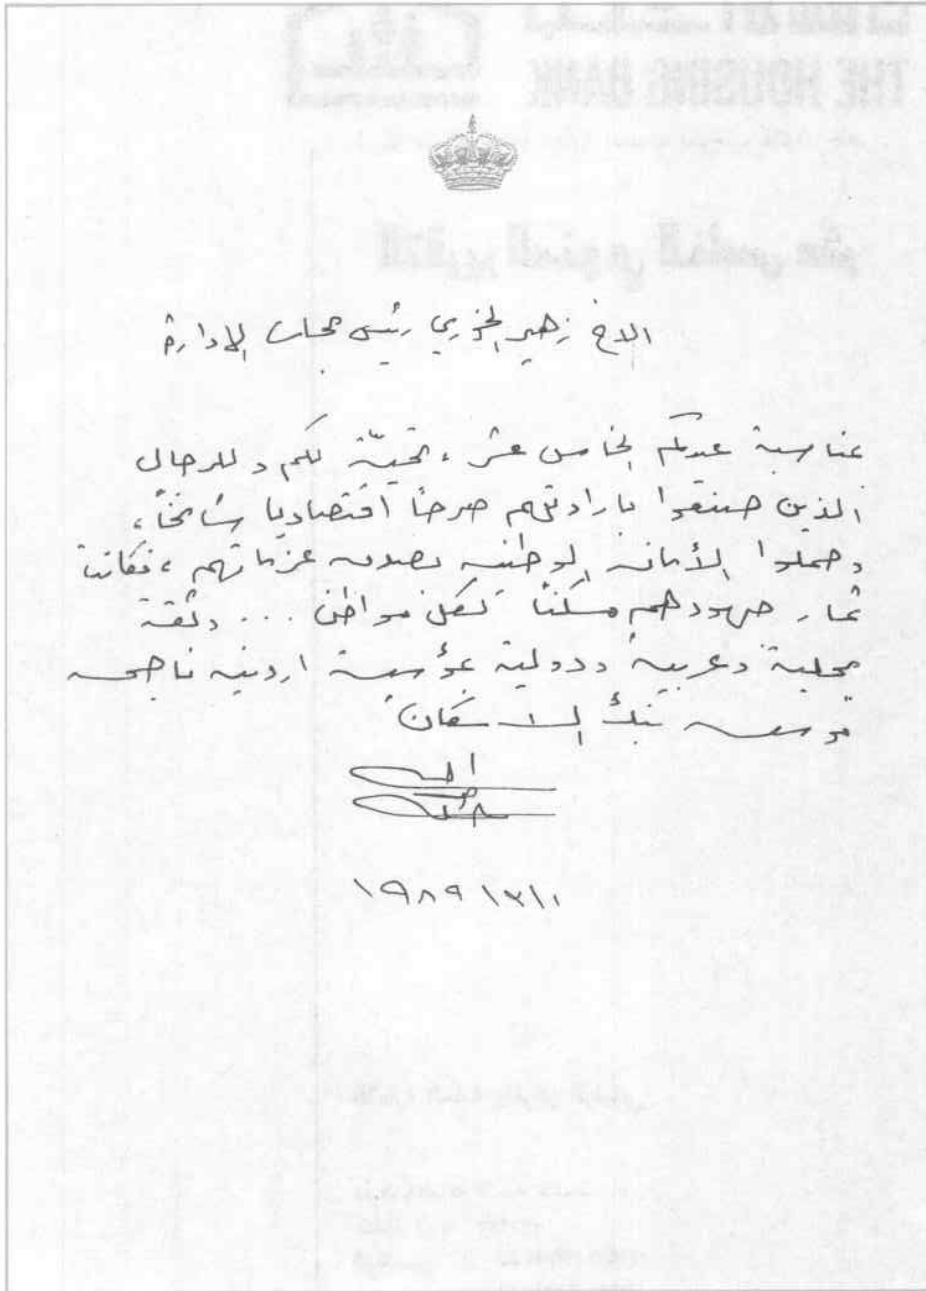 الاخ زهير الخوري رئيس مجلس الادارة
بمناسبة عيدكم الخامس عشر، تحيّة لكم وللرجال
الذين صنعوا بارادتهم صرحاً اقتصاديا شامخاً،
وحملوا الأمانه الوطنيه بصدق عزماتهم، فكانت
ثمار جهودهم مسكناً لكل مواطن ... وثقة
محلية وعربية ودولية بمؤسسة اردنيه ناجحه
بنك الاسكان
١٩٨٩ ١٣١١٠
THE HOUSING BANK